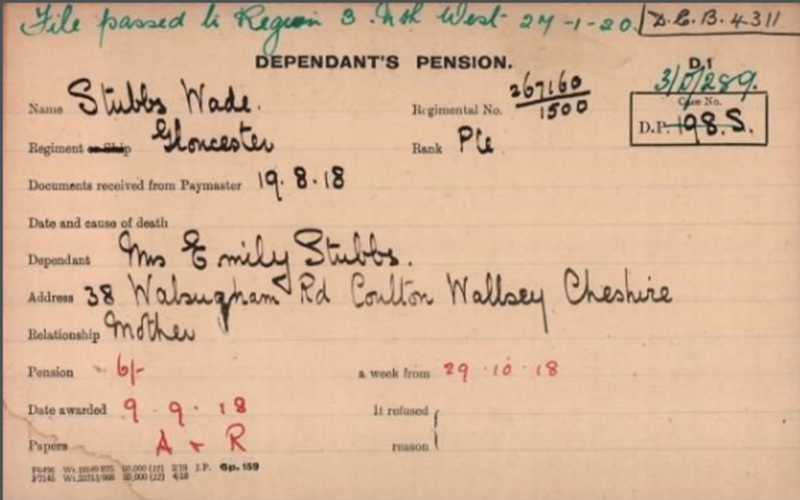 File passed to Region 3. Nth West 27-1-20. D.C.B. 4311
DEPENDANT'S PENSION.
D.1
3/D/289.
Name Stubbs Wade.
Regimental No. 267160
1500
Case No.
D.P. 198.S.
Regiment or Ship Gloncester
Rank Pte
Documents received from Paymaster 19.8.18
Date and cause of death
Dependant Mrs Emily Stubbs.
Address 38 Walsugham Rd Coulton Wallsey Cheshire
Relationship Mother
Pension 6/- a week from 29.10.18
Date awarded 9.9.18 If refused
Papers A + R reason
6p. 159